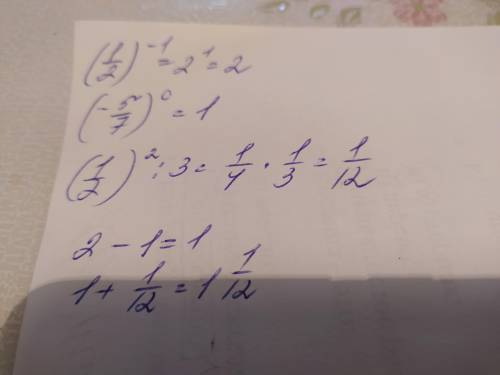 (1/2)⁻¹ = 2¹ = 2
(-5/7)⁰ = 1
(1/2)² : 3 = 1/4 · 1/3 = 1/12
2 - 1 = 1
1 + 1/12 = 1 1/12